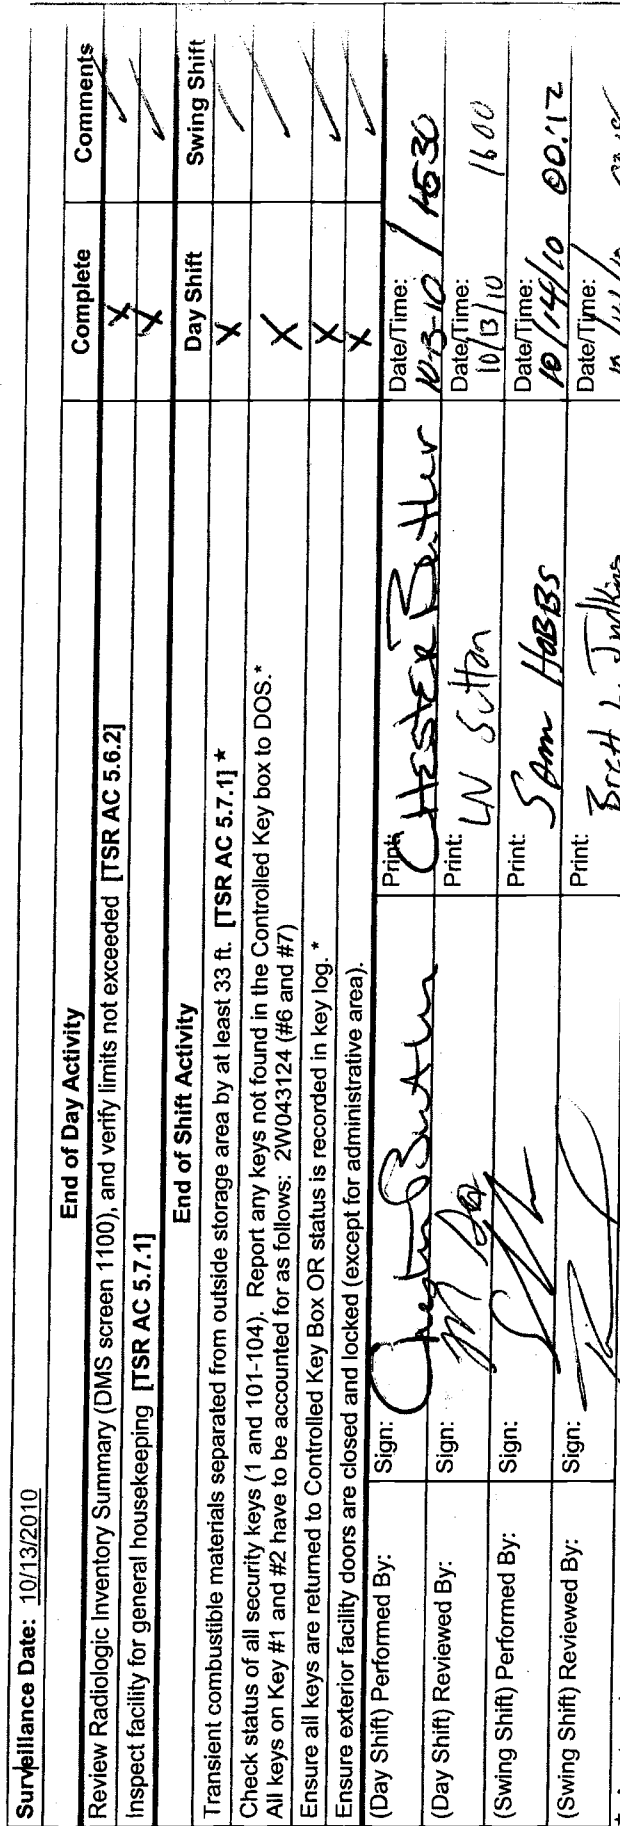 Surveillance Date: 10/13/2010
End of Day Activity Complete Comments
Review Radiologic Inventory Summary (DMS screen 1100), and verify limits not exceeded [TSR AC 5.6.2] X
Inspect facility for general housekeeping [TSR AC 5.7.1] X
End of Shift Activity Day Shift Swing Shift
Transient combustible materials separated from outside storage area by at least 33 ft. [TSR AC 5.7.1] * X
Check status of all security keys (1 and 101-104). Report any keys not found in the Controlled Key box to DOS.* X
All keys on Key #1 and #2 have to be accounted for as follows: 2W043124 (#6 and #7)
Ensure all keys are returned to Controlled Key Box OR status is recorded in key log. * X
Ensure exterior facility doors are closed and locked (except for administrative area). X
(Day Shift) Performed By: Sign: Print: CHESTER Butler Date/Time: 10-13-10 / 1530
(Day Shift) Reviewed By: Sign: Print: LN Sutton Date/Time: 10/13/10 1600
(Swing Shift) Performed By: Sign: Print: SAm HOBBS Date/Time: 10/14/10 00:12
(Swing Shift) Reviewed By: Sign: Print: Brett Judkins Date/Time: